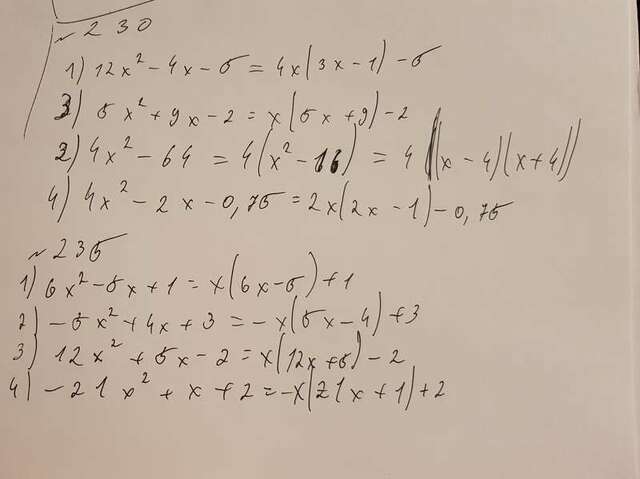 ~ 2 3 0
1) 12x² - 4x - 5 = 4x(3x - 1) - 5
3) 5x² + 9x - 2 = x(5x + 9) - 2
2) 4x² - 64 = 4(x² - 16) = 4((x - 4)(x + 4))
4) 4x² - 2x - 0,75 = 2x(2x - 1) - 0,75
~ 2 3 5
1) 6x² - 5x + 1 = x(6x - 5) + 1
2) - 5x² + 4x + 3 = -x(5x - 4) + 3
3) 12x² + 5x - 2 = x(12x + 5) - 2
4) - 21x² + x + 2 = -x(21x + 1) + 2